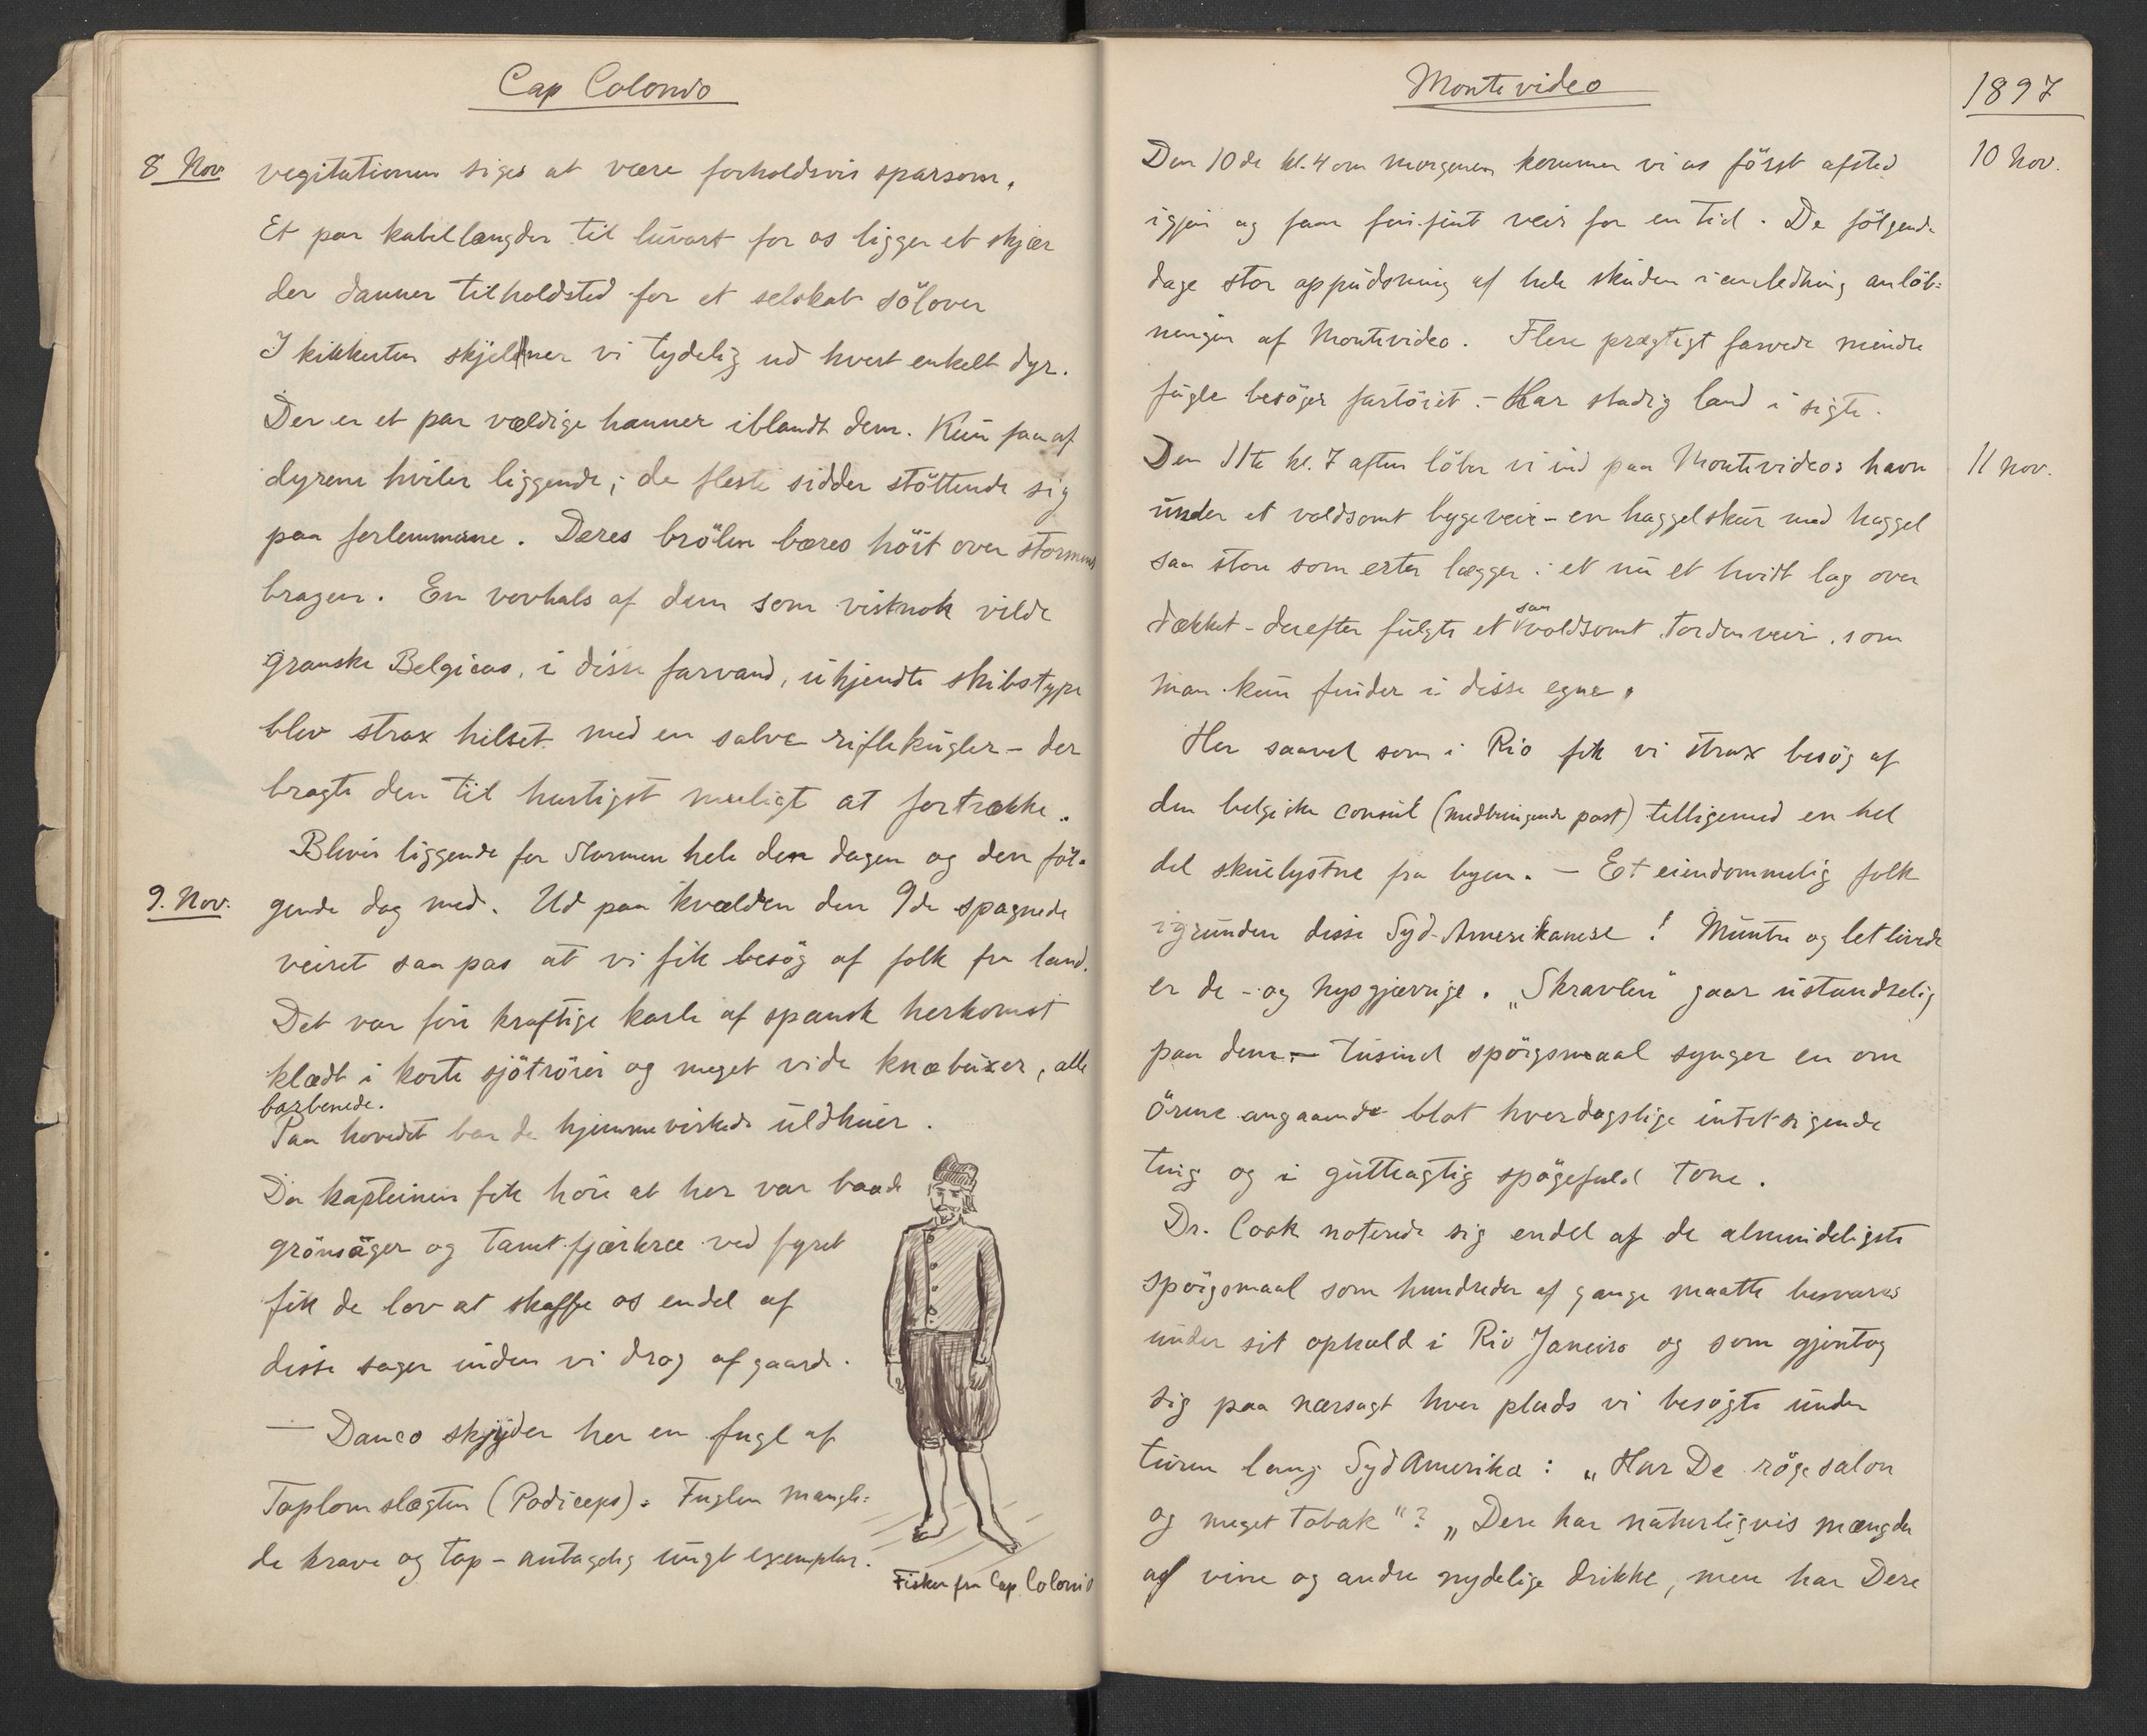 Cap Colonio
8 Nov
vegitationen siges at være forholdsvis sparsom.
Et par kabellængder til luvart for os ligger et skjær
der danner tilholdsted for et selskab sölöver
I kikkerten skjelner vi tydelig ud hvert enkelt dyr.
Der er et par vældige hanner iblandt dem. Kun faa af
dyrene hviler liggende; de fleste sidder stöttende sig
paa forlemmerne. Deres brölen bæres höit over stormens
bragen. En vovhals af dem som vistnok vilde
granske Belgicas, i disse farvand, ukjendte skibstype
blev strax hilset med en salve riflekugler – der
bragte den til hurtigst muligt at fortrække.
Blives liggende for stormen hele den dagen og den föl-
9. Nov.
gende dag med. Ud paa kvælden den 9de spagnede
veiret saa pas at vi fik besög af folk fra land.
Det var fire kraftige karle af spansk herkomst
klædt i korte sjötröier og meget vide knæbuxer, alle
barbenede.
Paa hovedet bar de hjemmevirkede uldhuer.
Da kapteinen fik höre at her var baade
grönsager og tamt fjærkræ ved fyret
fik de lov at skaffe os endel af
disse sager inden vi drog afgaarde.
— Danco skyder her en fugl af
Toplomslægten (Podiceps). Fuglen mangle-
de krave og top – antagelig ungt exemplar.
Fisker fra Cap Colonio
Montevideo
1897
10 Nov.
Den 10de kl. 4 om morgenen kommer vi os först afsted
igjen og faar fint veir for en tid. De fölgende
dage stor oppudsning af hele skuden i anledning anlöb-
ningen af Montevideo. Flere prægtigt farvede mindre
fugle besöger fartöiet. – Har stadig land i sigte.
11 Nov.
Den 11te kl. 7 aften löber vi ind paa Montevideos havn
under et voldsomt bygeveir – en haggelskur med haggel
saa store som erter lægger i et nu et hvidt lag over
dækket – derefter fulgte et saa voldsomt tordenveir, som
man kun finder i disse egne.
Her saavel som i Rio fik vi strax besög af
den belgiske consul (medbringende post) tilligemed en hel
del skuelystne fra byen. – Et eiendommelig folk
igrunden disse Syd-Amerikanere! Muntre og letlivede
er de – og nysgjærrige. „Skravlen" gaar ustandselig
paa dem – tusind spörgsmaal synger en om
örene angaaende blot hverdagslige intetsigende
ting og i gutteagtig spögefuld tone.
Dr. Cook noterede sig endel af de almindeligste
spörgsmaal som hundreder af gange maatte besvares
under sit ophold i Rio Janeiro og som gjentog
sig paa nærsagt hver plads vi besögte under
turen lang Syd Amerika: „Har De rögesalon
og meget tobak"? „Dere har naturligvis mængder
af vine og andre nydelige drikke, men har Dere